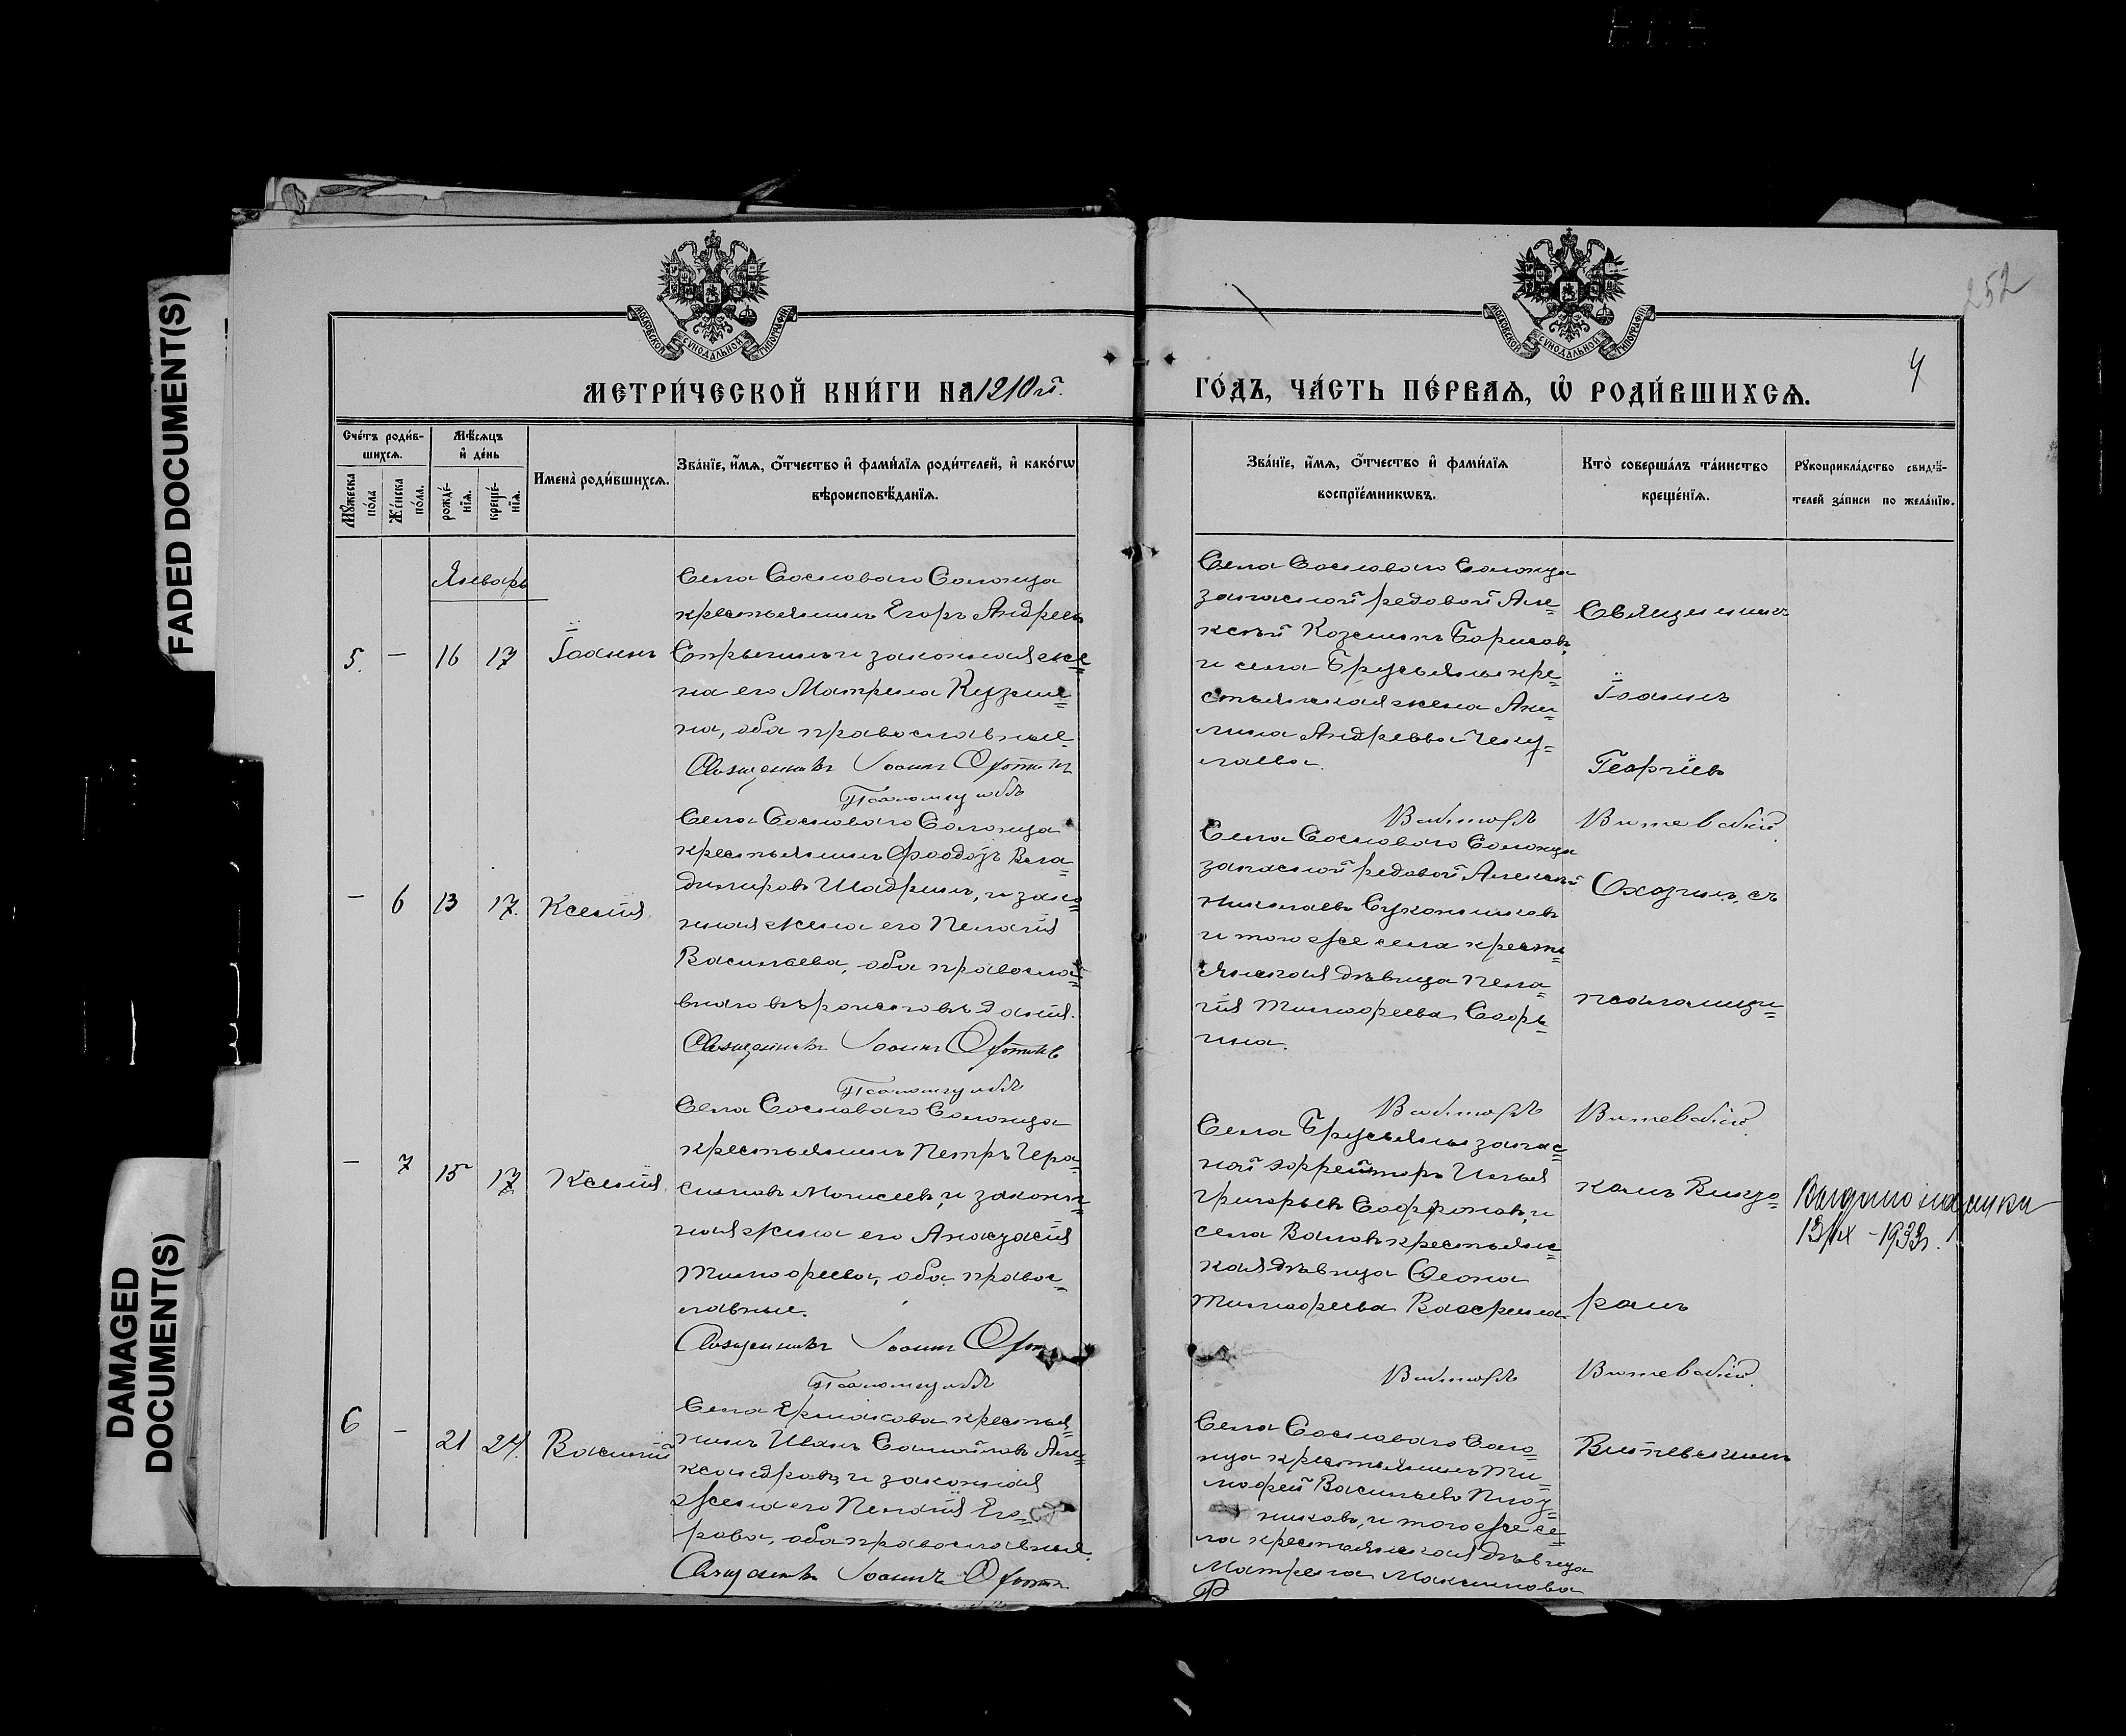 FADED DOCUMENT(S)
DAMAGED
DOCUMENT(S)
252
4
МОСКОВСКОЙ СѴНОДАЛЬНОЙ ТИПОГРАФІИ
МОСКОВСКОЙ СѴНОДАЛЬНОЙ ТИПОГРАФІИ
МЕТРИ́ЧЕСКОЙ КНИ́ГИ НА 1910й.
ГО́ДЪ, ЧА́СТЬ ПЕ́РВАѦ, Ѽ РОДИ́ВШИХСѦ.
Сче́тъ роди́в-
шихсѧ.
Мꙋ́жеска
по́ла
Же́нска
по́ла.
Мѣ́сѧцъ
и҆ де́нь
рожде́-
нїѧ.
креще́-
нїѧ.
Имена̀ роди́вшихсѧ.
Зва́нїе, и҆́мѧ, ѻ҆́тчество и҆ фами́лїѧ роди́телей, и҆ како́гѡ
вѣроисповѣ́данїѧ.
Зва́нїе, и҆́мѧ, ѻ҆́тчество и҆ фами́лїѧ
воспрїе́мникѡвъ.
Кто̀ соверша́лъ та́инство
креще́нїѧ.
Рꙋкоприкла́дство свидѣ́-
телей за́писи по жела́нїю.
Январь
5. – 16 17 Іоаннъ
Села Сосноваго Солонца
крестьянинъ Егоръ Андреевъ
Стрыгинъ и законная же=
на его Матрена Кузми=
на, оба православные.
Священникъ Іоаннъ
Псаломщикъ
Села Сосноваго Солонца
запасной редовой Але=
ксѣй Козминъ Борисовъ,
и села Брусьяны кре=
стьянская жена Аки=
лина Андреева Чека=
лаева.
Викторъ
Священникъ
Іоаннъ
Георгіевъ
Витевскій
– 6 13 17. Ксенія
Села Сосноваго Солонца
крестьянинъ Феодоръ Вла=
димировъ Шадринъ, и зако=
нная жена его Пелагія
Васильева, оба правосла=
внаго вѣроисповѣданія.
Священникъ Іоаннъ
Псаломщикъ
Села Сосноваго Солонца
запасной редовой Алексѣй
Николаевъ Суконниковъ
и того же села кресть=
янская дѣвица Пела=
гія Тимофеева
Викторъ
съ
псаломщи=
Витевскій
– 7 15 17 Ксенія
Села Сосноваго Солонца
крестьянинъ Петръ Гера=
симовъ Моисеевъ, и закон=
ная жена его Анастасія
Тимофеева, оба правос=
лавные.
Священникъ Іоаннъ
Псаломщикъ
Села Брусьяны запас=
ной ефрейторъ Илья
Григорьевъ Софроновъ, и
села Валовъ крестьянс=
кая дѣвица
Тимофеева
Викторъ
комъ Викто=
ромъ
Витевскій
13/IX – 1933г.
6 – 21 24. Василій
Села Ермакова крестья=
нинъ Иванъ Самойловъ Але=
ксандровъ, и законная
жена его Пелагія Его=
рова, оба православные.
Священникъ Іоаннъ
Села Сосноваго Соло=
нца крестьянинъ Ти=
мофей Васильевъ Плот=
никовъ, и того же се=
ла крестьянская дѣвица
Матрена Максимова
Витевскимъ